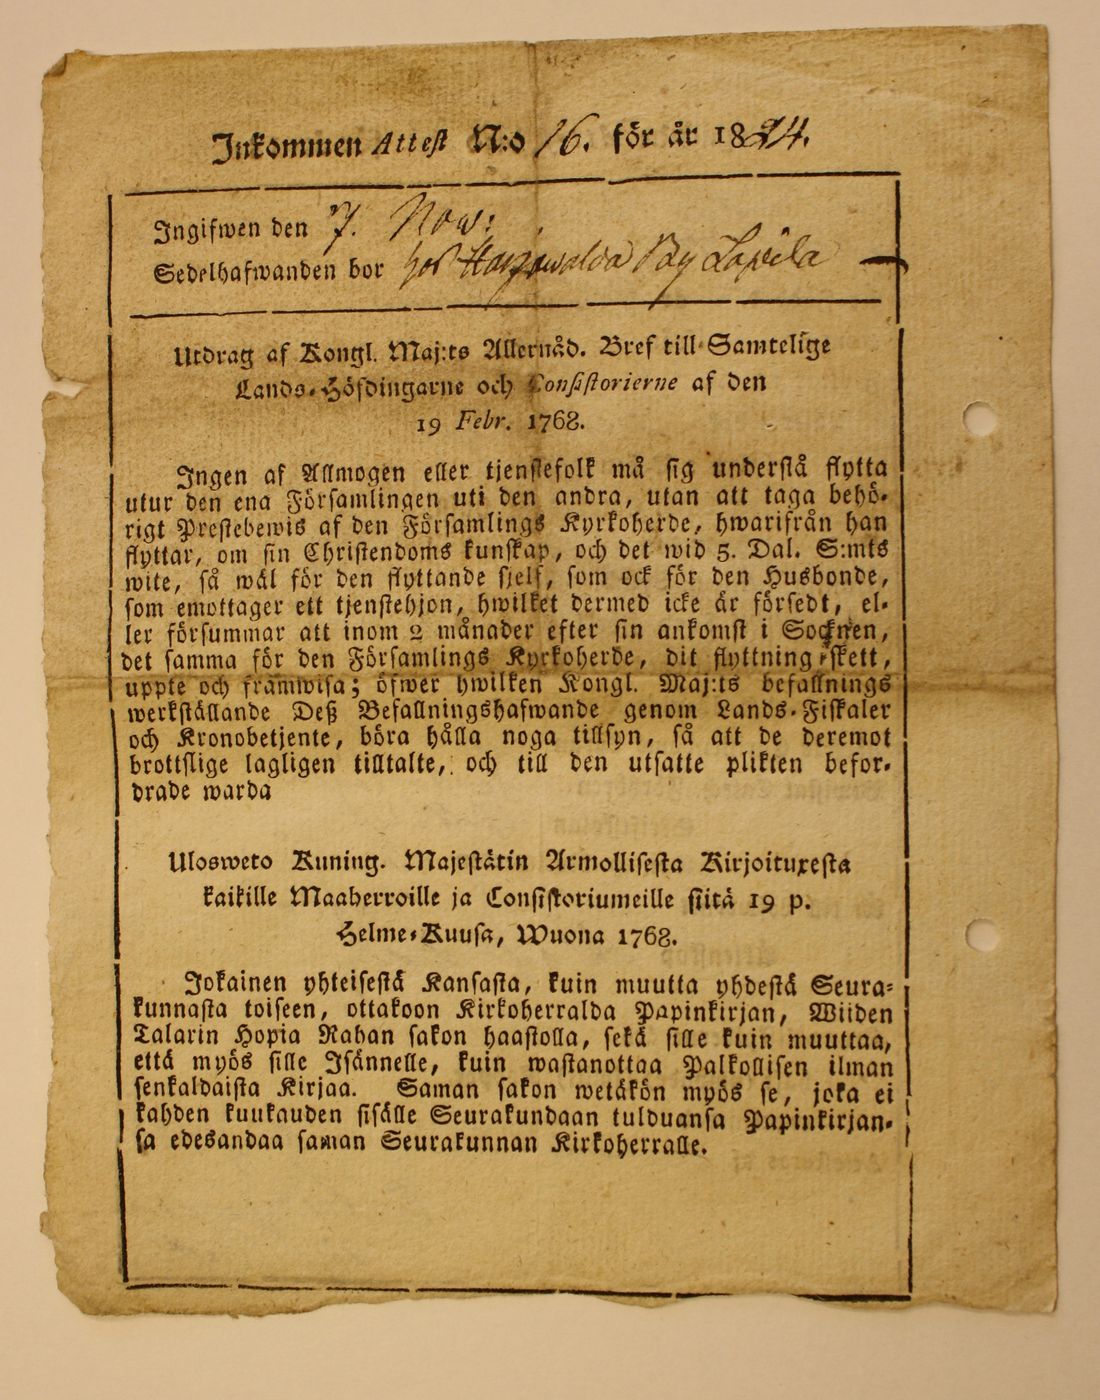 Inkommen Attest N:o 16. för år 1824.
Ingifwen den 7. Now:
Sedelhafwanden bor hos By
Utdrag af Kongl. Maj:ts Allernåd. Bref till Samtelige
Lands-Höfdingarne och Consistorierne af den
19 Febr. 1768.
Ingen af Allmogen eller tjenstefolk må sig understå flytta
utur den ena Församlingen uti den andra, utan att taga behö-
rigt Prestebewis af den Församlings Kyrkoherde, hwarifrån han
flyttar, om sin Christendoms kunskap, och det wid 5. Dal. S:mts
wite, så wäl för den flyttande sjelf, som ock för den Husbonde,
som emottager ett tjenstehjon, hwilket dermed icke är försedt, el-
ler försummar att inom 2 månader efter sin ankomst i Socknen,
det samma för den Församlings Kyrkoherde, dit flyttning skett,
uppte och framwisa; öfwer hwilken Kongl. Maj:ts befallnings
werkställande Deß Befallningshafwande genom Lands-Fiskaler
och Kronobetjente, böra hålla noga tillsyn, så att de deremot
brottslige lagligen tilltalte, och till den utsatte plikten befor-
drade warda
Ulosweto Kuning. Majestätin Armollisesta Kirjoituxesta
kaikille Maaherroille ja Consistoriumeille siitä 19 p.
Helme-Kuusa, Wuona 1768.
Jokainen yhteisestä Kansasta, kuin muutta yhdestä Seura-
kunnasta toiseen, ottakoon Kirkoherralda Papinkirjan, Wiiden
Talarin Hopia Rahan sakon haastolla, sekä sille kuin muuttaa,
että myös sille Isännelle, kuin wastanottaa Palkollisen ilman
senkaldaista Kirjaa. Saman sakon wetäkön myös se, joka ei
kahden kuukauden sisälle Seurakundaan tulduansa Papinkirjan-
sa edesandaa saman Seurakunnan Kirkoherralle.